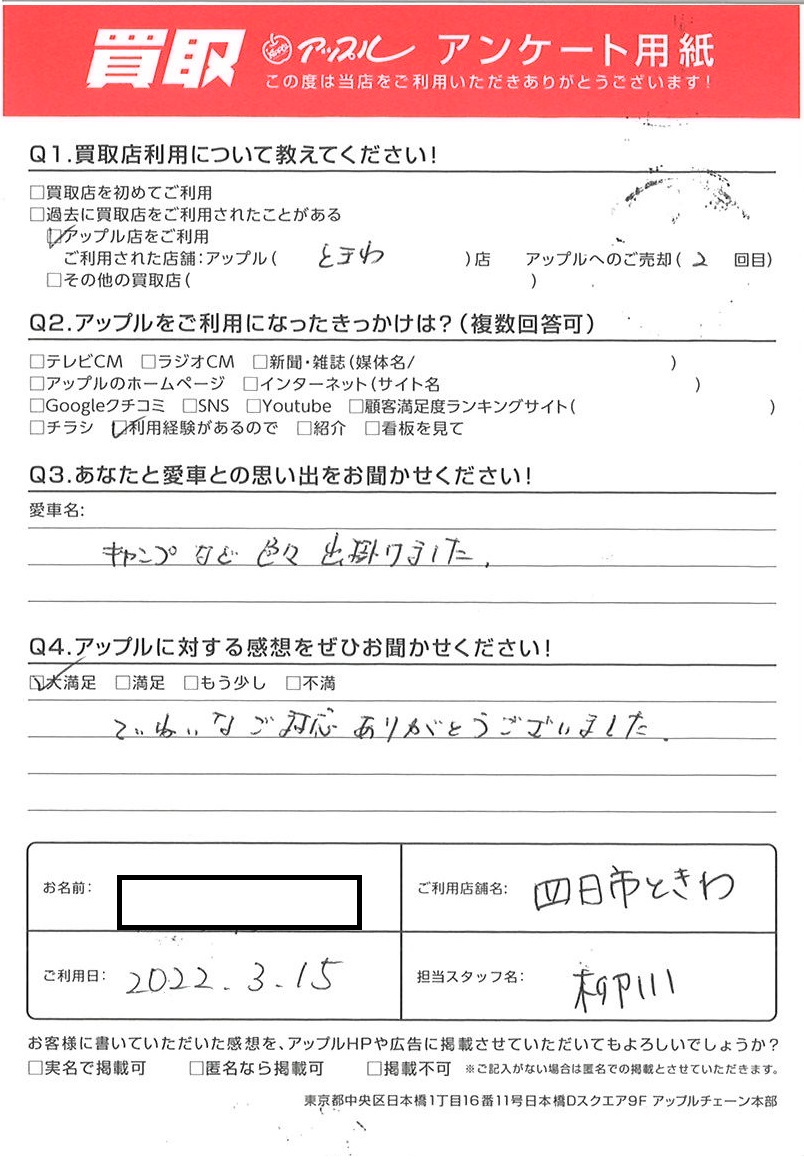 買取 アップル アンケート用紙
この度は当店をご利用いただきありがとうございます!
Q1.買取店利用について教えてください!
□買取店を初めてご利用
□過去に買取店をご利用されたことがある
☑アップル店をご利用
ご利用された店舗:アップル( ときわ )店 アップルへのご売却( 2 回目)
□その他の買取店( )
Q2.アップルをご利用になったきっかけは?(複数回答可)
□テレビCM □ラジオCM □新聞・雑誌(媒体名/ )
□アップルのホームページ □インターネット(サイト名 )
□Googleクチコミ □SNS □Youtube □顧客満足度ランキングサイト( )
□チラシ ☑利用経験があるので □紹介 □看板を見て
Q3.あなたと愛車との思い出をお聞かせください!
愛車名:
キャンプなど色々出掛けました。
Q4.アップルに対する感想をぜひお聞かせください!
☑大満足 □満足 □もう少し □不満
ていねいなご対応ありがとうございました。
お名前: ご利用店舗名: 四日市ときわ
ご利用日: 2022.3.15 担当スタッフ名: 柳川
お客様に書いていただいた感想を、アップルHPや広告に掲載させていただいてもよろしいでしょうか?
□実名で掲載可 □匿名なら掲載可 □掲載不可 ※ご記入がない場合は匿名での掲載とさせていただきます。
東京都中央区日本橋1丁目16番11号日本橋Dスクエア9F アップルチェーン本部